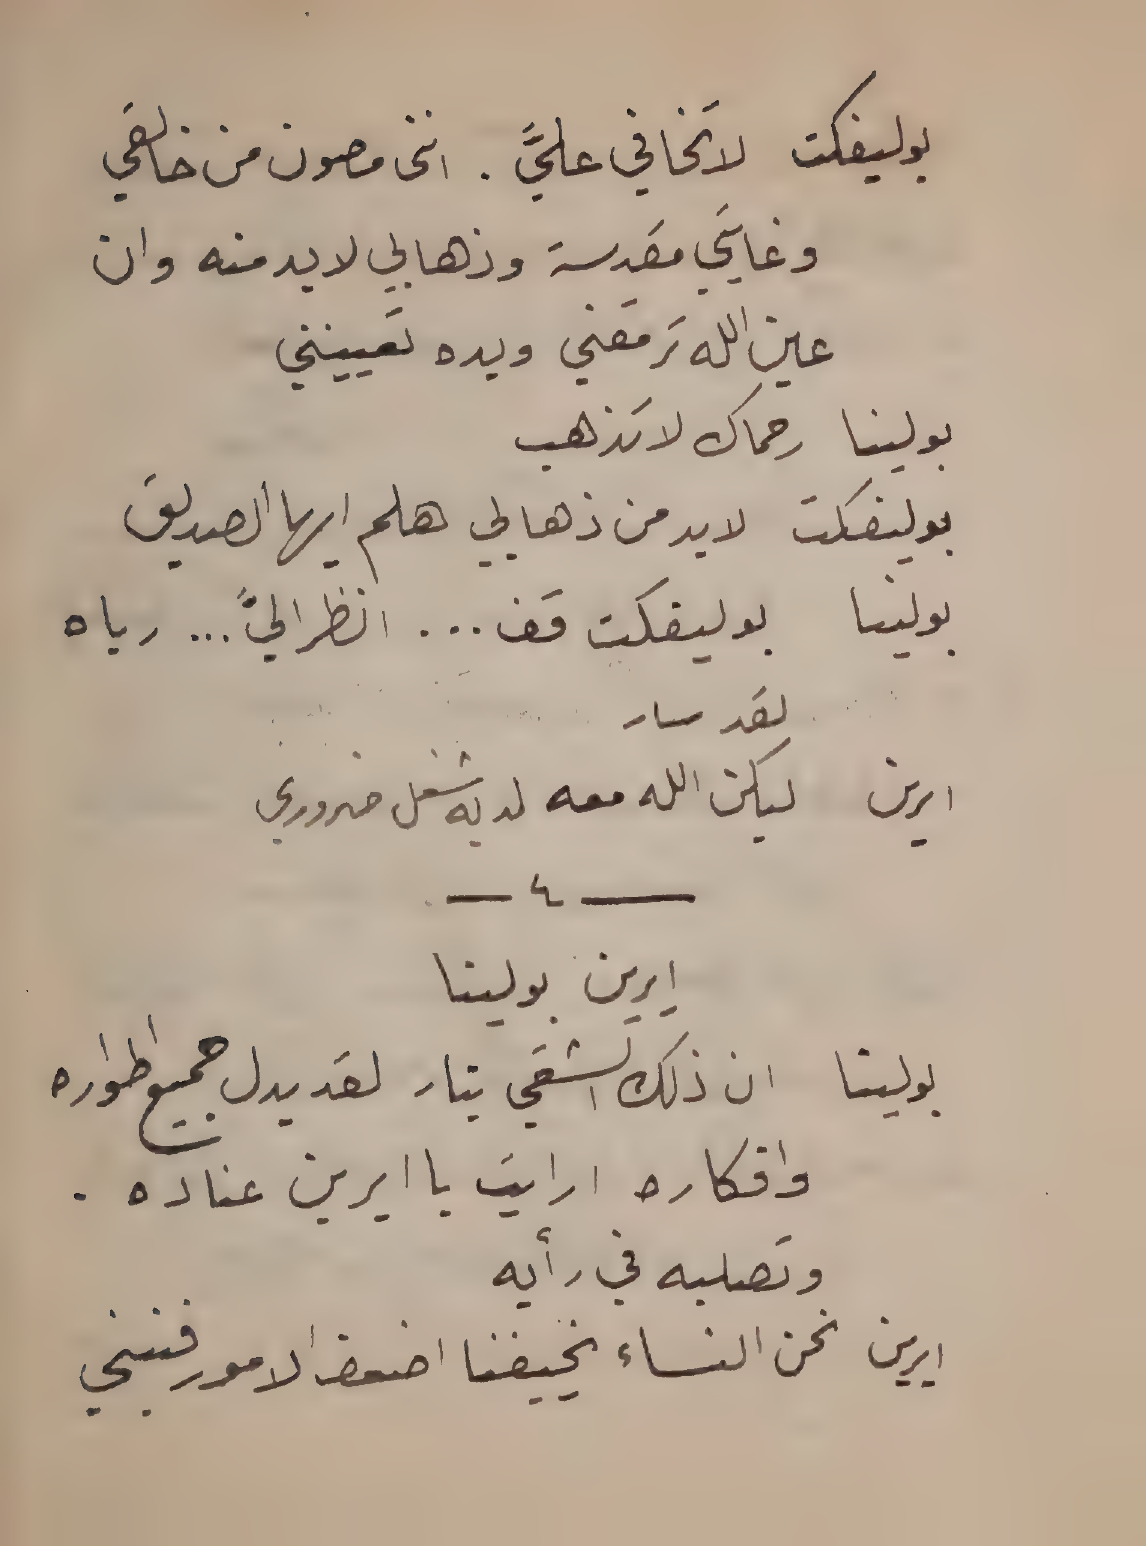 بوليفكت لا تخافي عليَّ . انني مصون من خالقي
وغايتي مقدسة وذهابي لا بد منه وان
عين الله ترمقني ويده تعينني
بولينا رحماك لا تذهب
بوليفكت لا بد من ذهابي هلم ايها الصديق
بولينا بوليفكت قف ... انظر اليَّ ... رباه
لقد سار
ايرين ليكن الله معه لديه شغل ضروري
— ٤ —
ايرين بولينا
بولينا ان ذلك الشقي ينار لقد بدل جميع اطواره
وافكاره ارايت يا ايرين عناده .
وتصلبه في رأيه
ايرين نحن النساء تخيفنا اضعف الامور فنبني